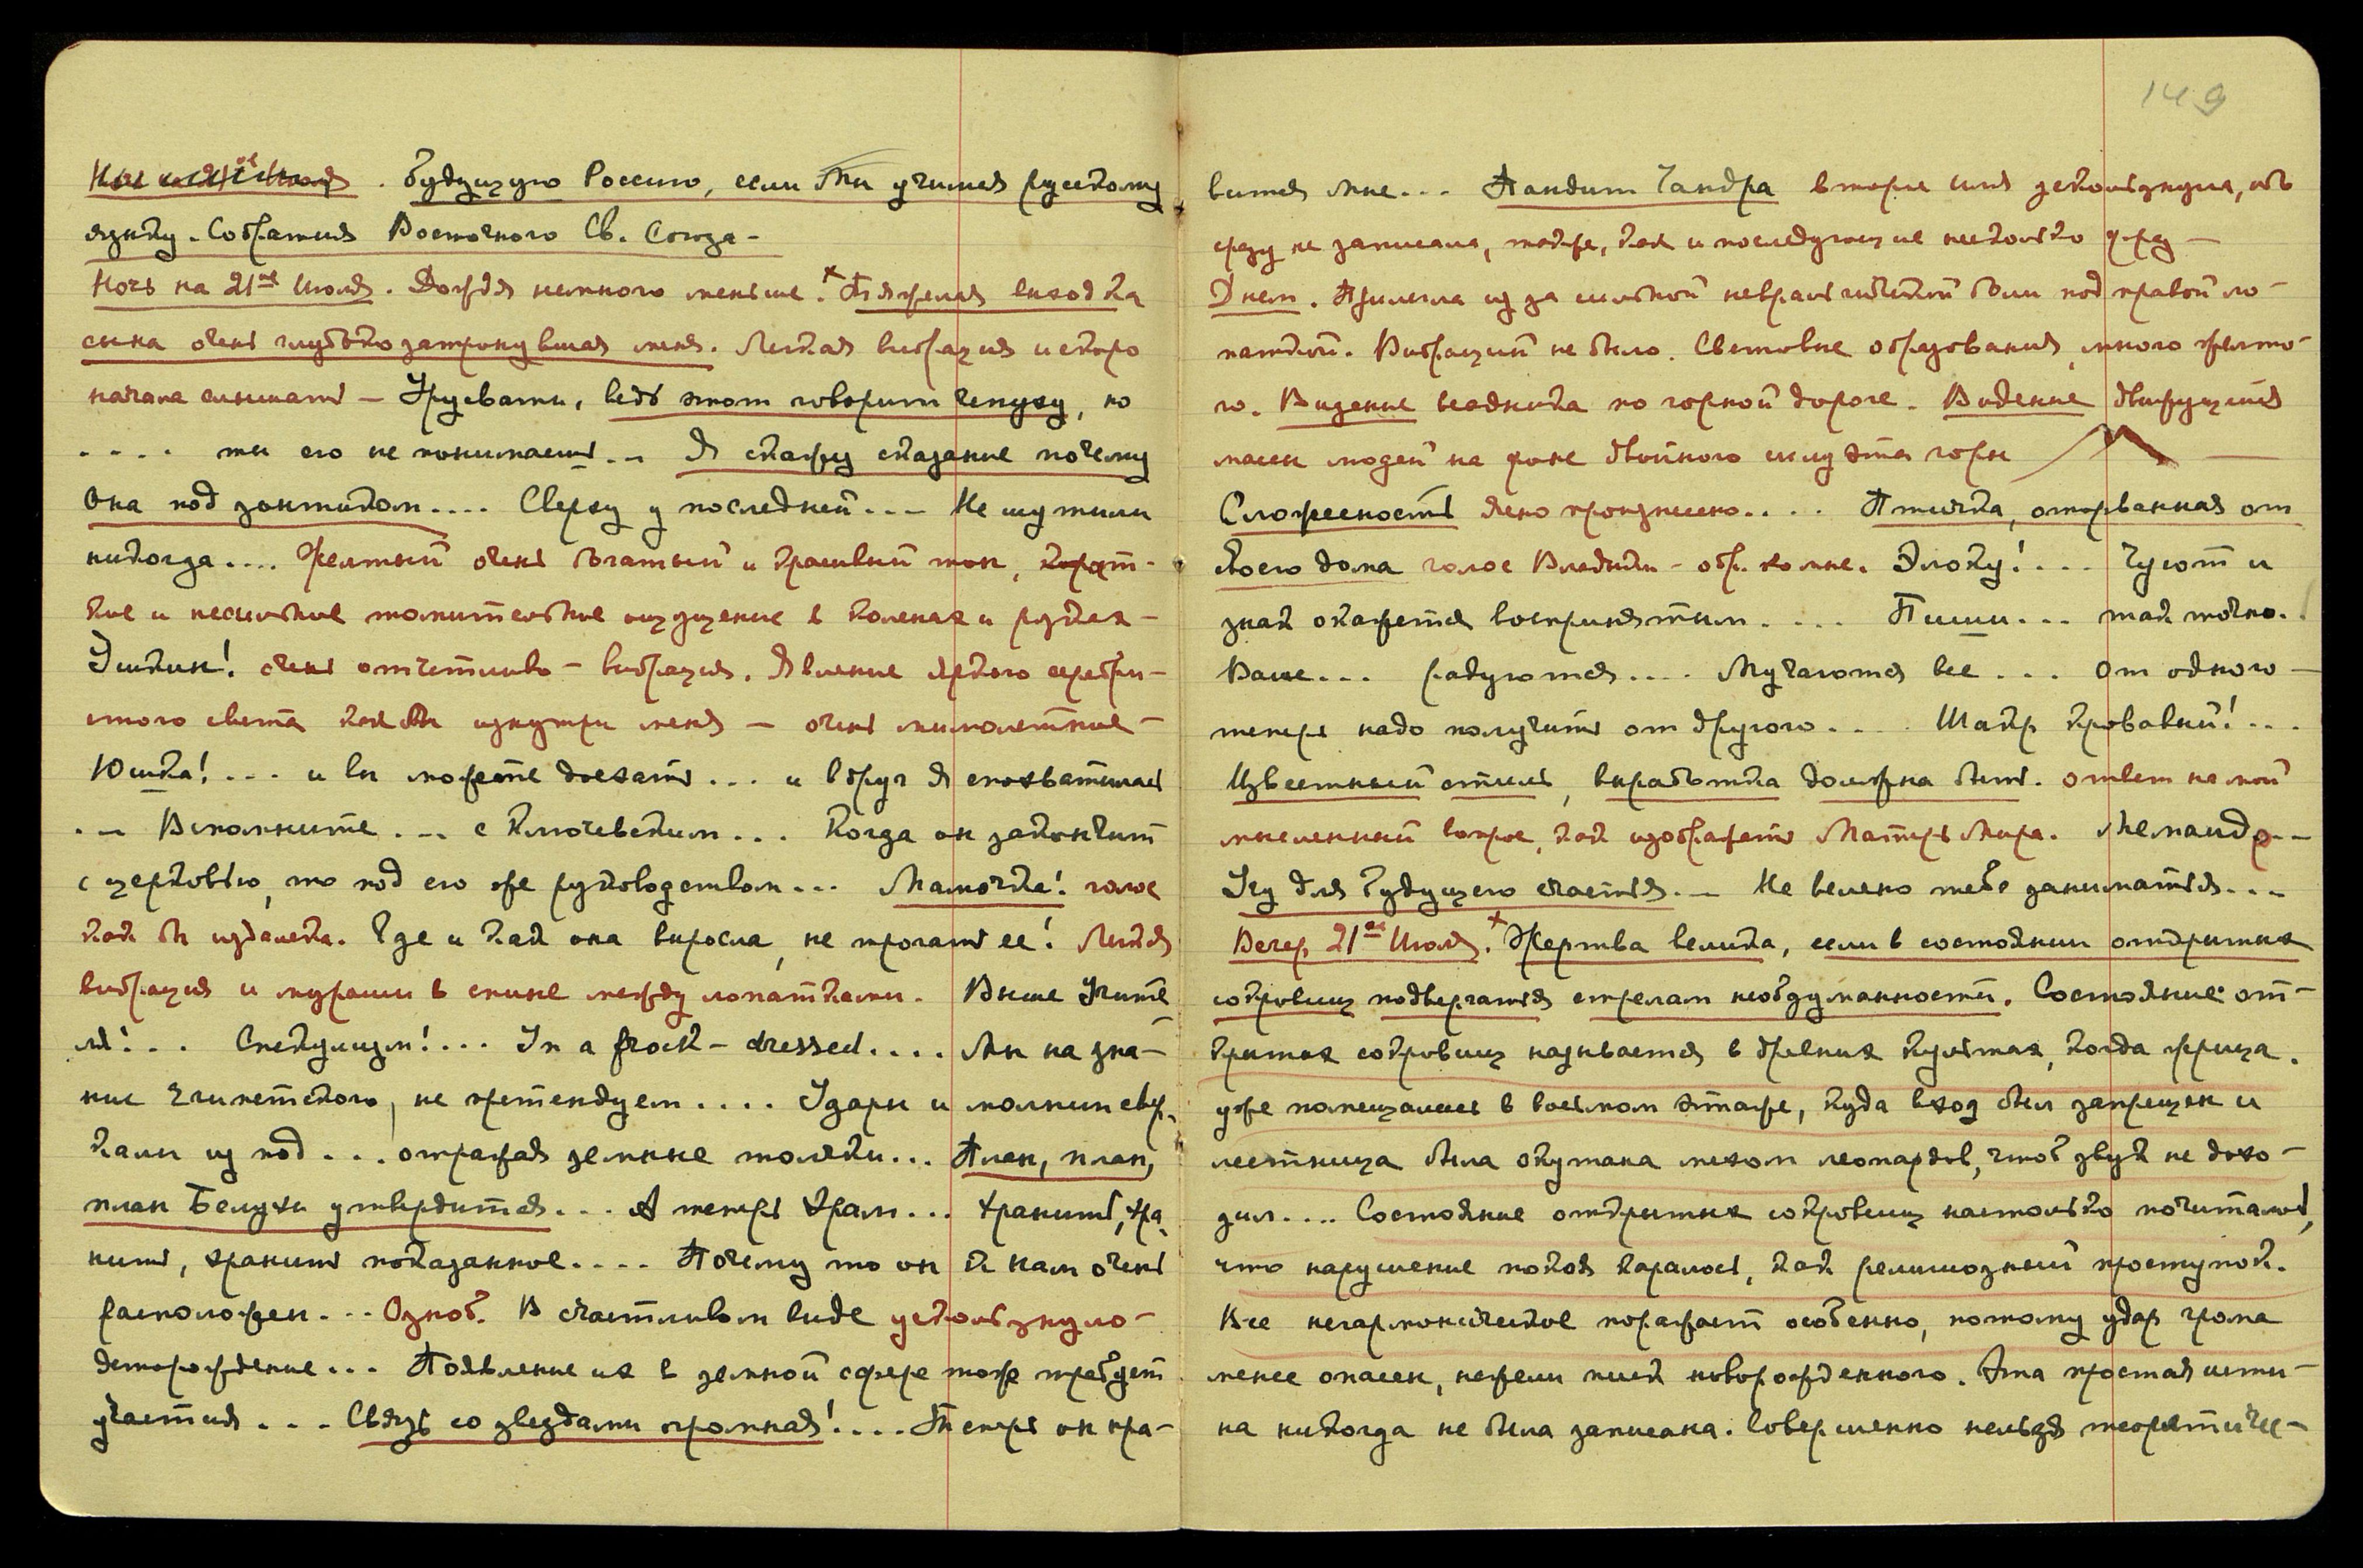 будущую Россию, если Ты учишься русскому
языку. Собратья Восточного Св. Союза —
Ночь на 21ое Июля. Дождя немного меньше. × Тяжелая выходка
сына очень глубоко затронувшая меня. Легкая вибрация и скоро
начала слышать — Урусвати, ведь этот говорит чепуху, но
.... ты его не понимаешь... Я скажу сказание почему
она под зонтиком.... Сверху у последней... Не шутили
никогда.... Желтый очень богатый и красивый тон, корот-
кое и несильное томительное ощущение в коленах и руках —
Эшкин! очень отчетливо — вибрация. Явление яркого серебри-
стого света как бы изнутри меня — очень мимолетное —
Юшка!... и вы можете доехать... и вдруг я спохватилась
... Вспомните... с Ключевским... Когда он закончит
с церковью, то под его же руководством... Мамочка! голос
как бы издалека. Где и как она выросла, не трогать ее! Легкая
вибрация и мураши в спине между лопатками. Выше Учите
ля!... Спекулизм!... In a frock — dressed.... Мы на зна-
ние Египетского, не претендуем.... Удары и молнии сверкали
из под... отражая земные толчки... План, план,
план Белухи утвердится... А теперь Храм... хранить, хра
нить, хранить показанное.... Почему то он к нам очень
расположен... Озноб. В счастливом виде ускользнуло —
деторождение... Появление их в земной сфере тоже требует
участия... Связь со звездами огромная!.... Теперь он нра-
149
вится мне... Пандит Чандра второе имя ускользнуло,
сразу не записала, также, как и последующие несколько фраз —
Днем. Прилегла из за сильной невралгической боли под правой ло-
паткой. Вибраций не было. Световые образования, много желто-
го. Видение всадника по горной дороге. Видение движущихся
масс людей на фоне двойного силуэта горы
Словесность ясно произнесено.... Птичка, оторванная от
своего дома голос Владыки — обр. ко мне. Элоку!... Чуют и
знак окажется воспринятым.... Пиши... так точно..
Ваше... радуются.... Мучаются все... От одного —
теперь надо получить от другого.... Шакр кровавый!...
Известный стиль, выработка должна быть. ответ на мой
мысленный вопрос, как изобразить Матерь Мира.
Иду для будущего счастья... Не велено тебе заниматься...
Вечер 21ое Июля. × Жертва велика, если в состоянии открытых
сокровищ подвергаться стрелам необдуманности. Состояние от-
крытых сокровищ называется в древних культах, когда жрица.
уже помещалась в восьмом этаже, куда вход был запрещен и
лестница была окутана мехом леопардов, чтоб звук не дохо-
дил.... Состояние открытых сокровищ настолько почиталось,
что нарушение покоя каралось, как религиозный проступок.
Все негармоническое поражает особенно, потому удар грома
менее опасен, нежели писк новорожденного. Эта простая исти-
на никогда не была записана. Совершенно нельзя теоретиче-